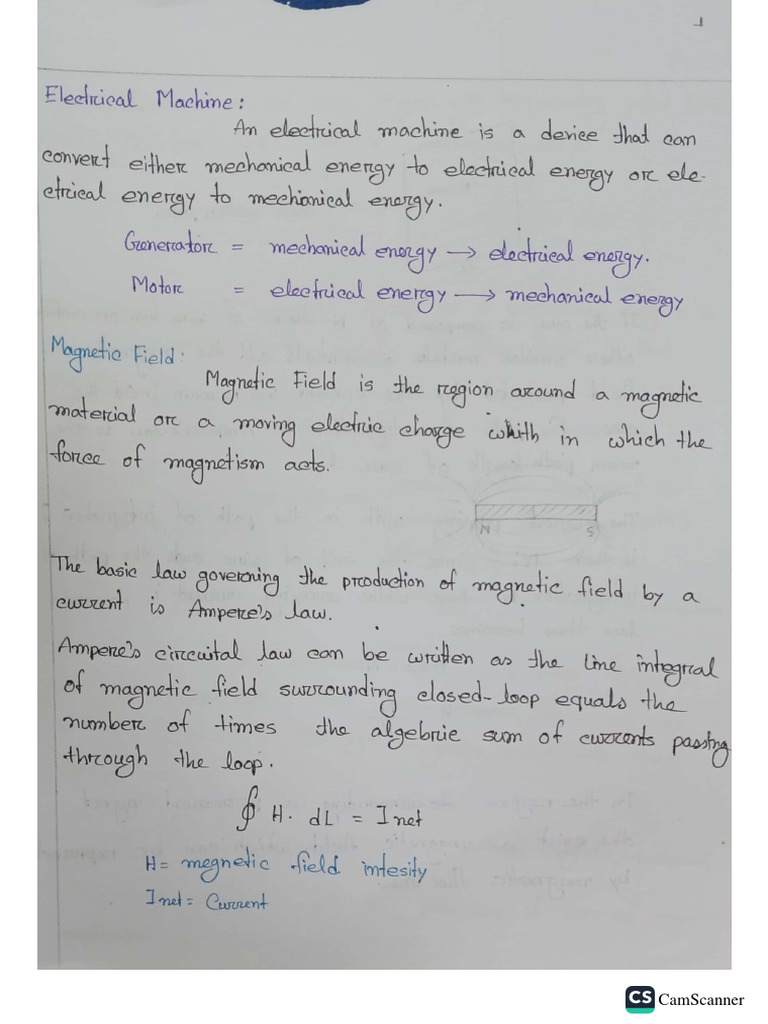 1
Electrical Machine:
An electrical machine is a device that can
convert either mechanical energy to electrical energy or ele-
ctrical energy to mechionical energy.
Generator = mechanical energy → electrical energy.
Motor = electrical energy → mechanical energy
Magnetic Field:
Magnetic Field is the region around a magnetic
material or a moving electric charge whith in which the
force of magnetism acts.
N S
The basic law governing the production of magnetic field by a
current is Ampere's law.
Ampere's circuital law can be written as the line integral
of magnetic field surrounding closed-loop equals the
number of times the algebric sum of currents passing
through the loop.
∮ H. dL = I net
H = megnetic field intesity
I net = Current
CS CamScanner